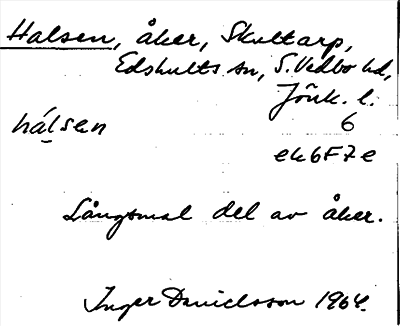 Halsen, åker, Skuttarp,
Edshults sn, S. Vedbo hd,
Jönk. l.
hálsen
6
ek 6F7e
Långsmal del av åker.
Inger Danielsson 1964.